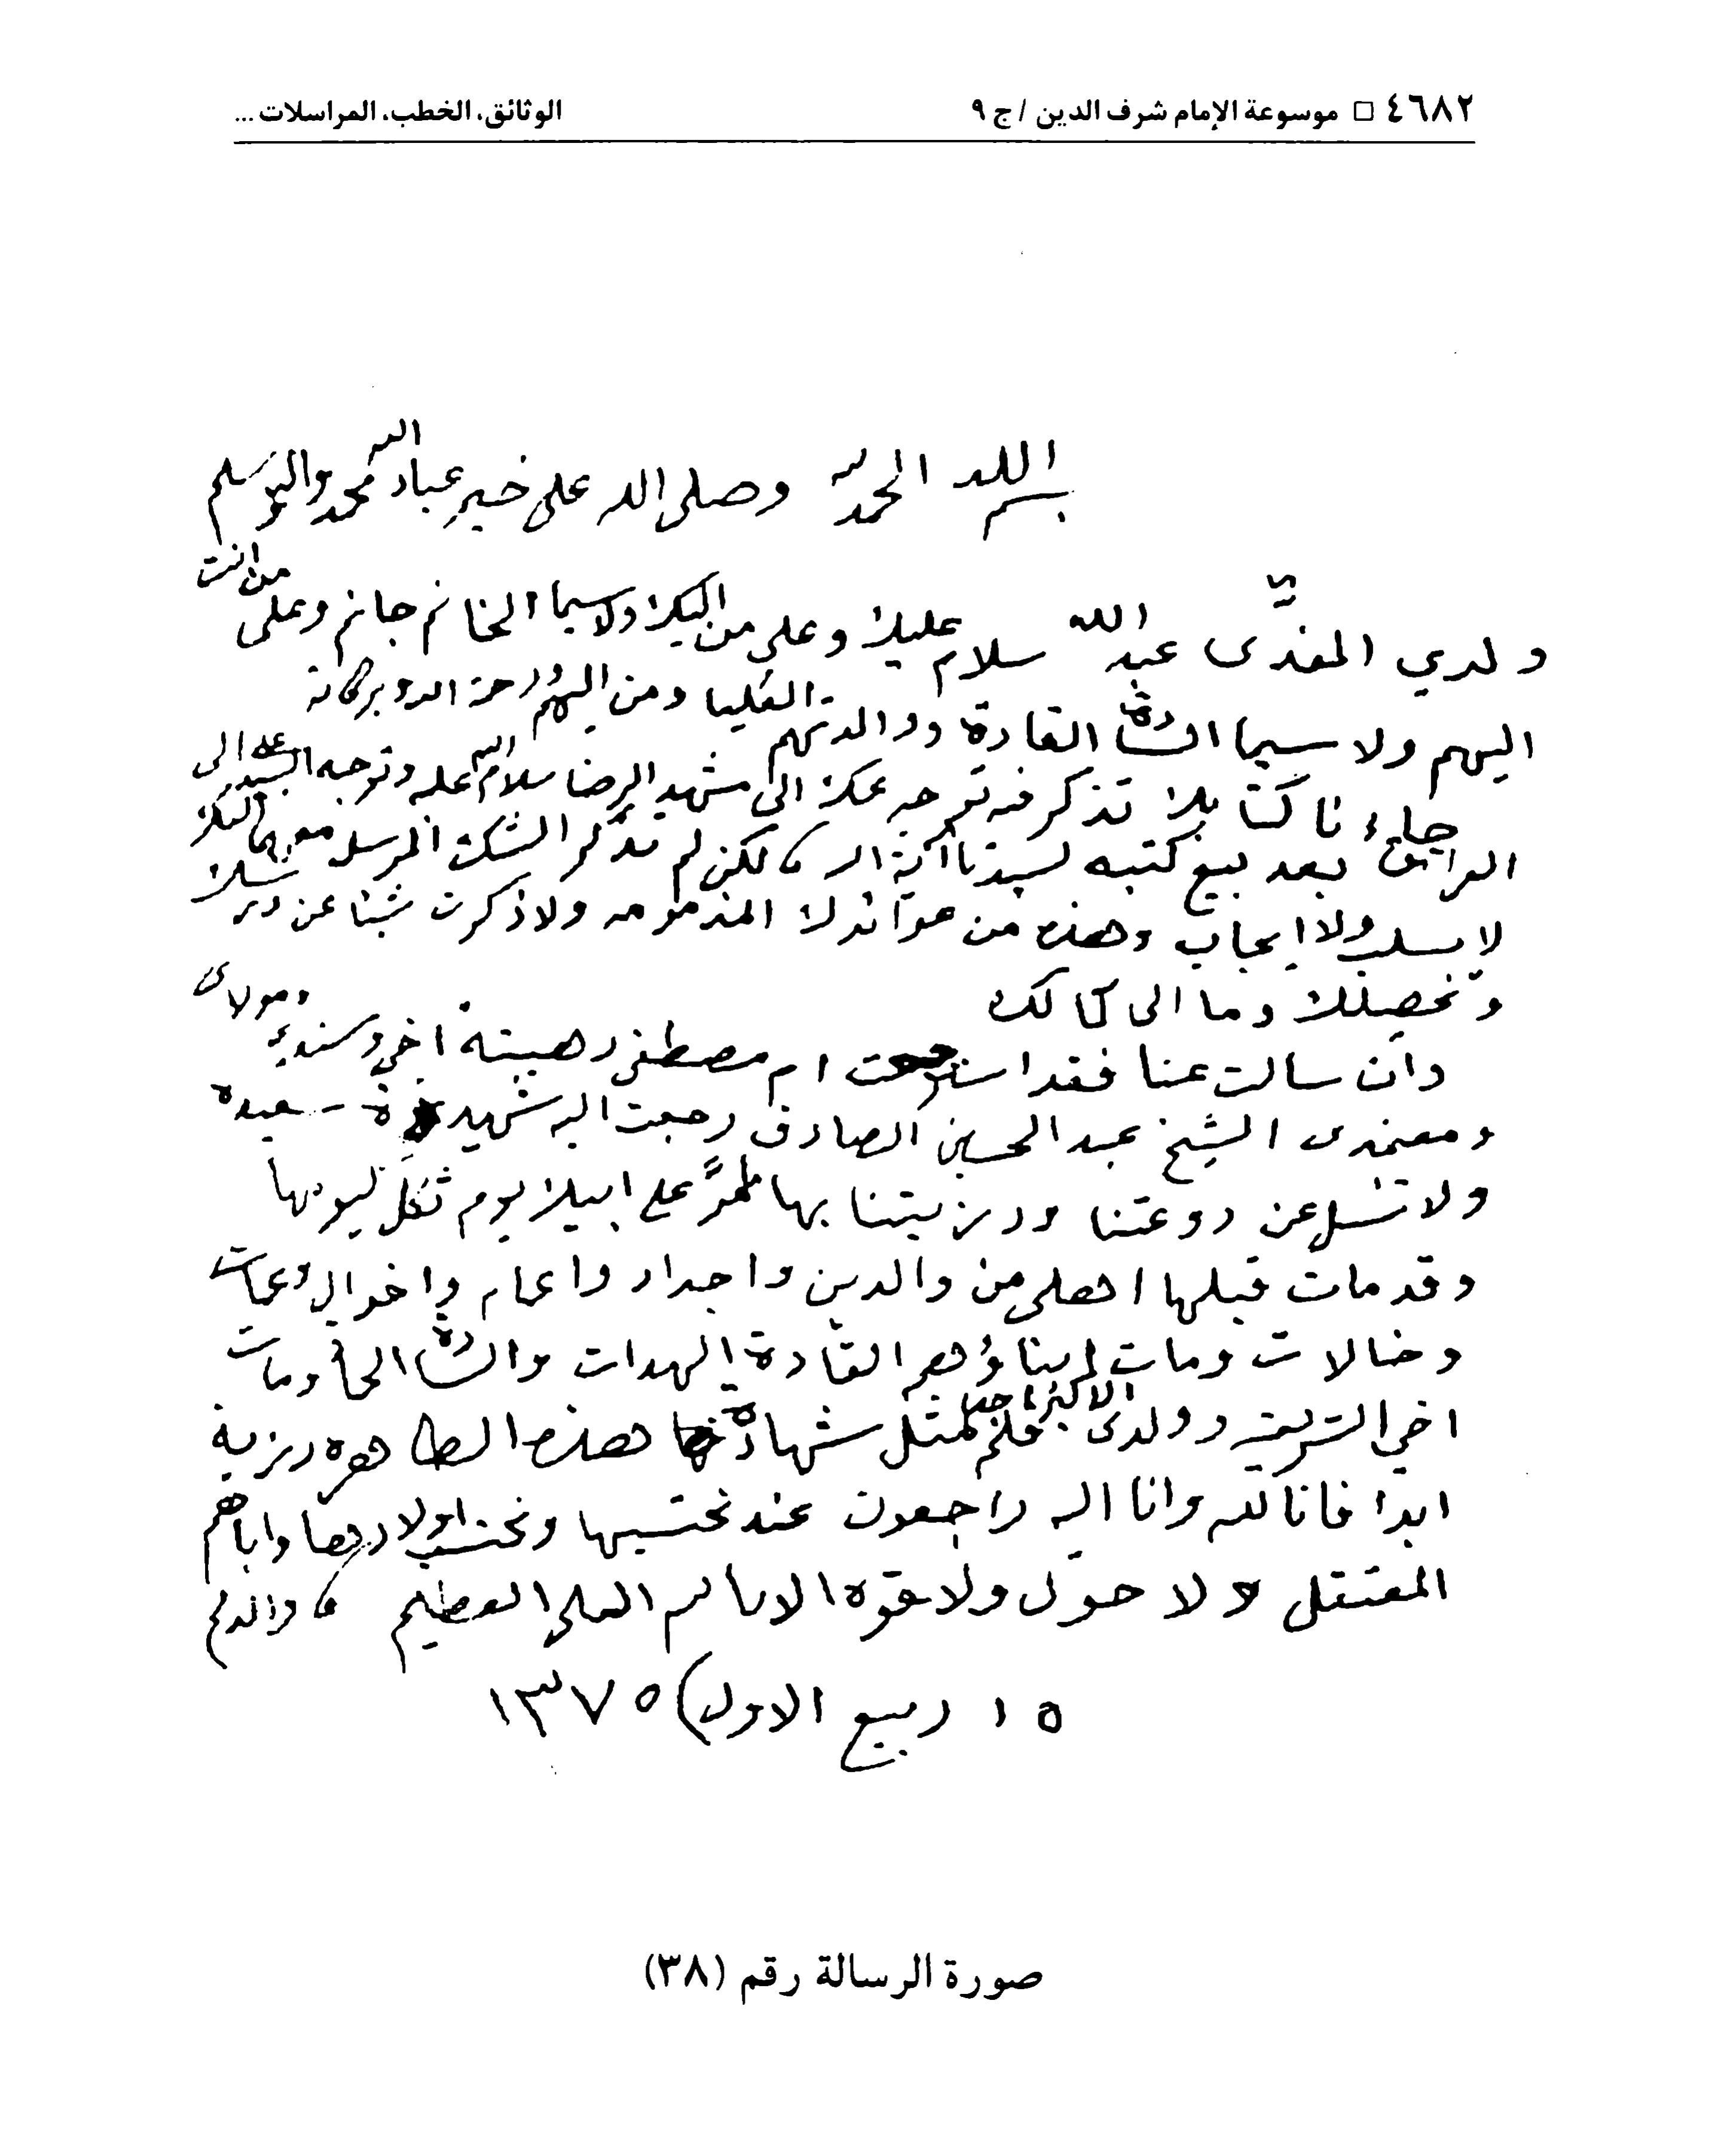 ٤٦٨٢ □ موسوعة الإمام شرف الدين / ج ٩
الوثائق، الخطب، المراسلات ...
بسم الله الحمد لله وصلى الله على خير عباد الله محمد واله وسلم
ولدي المفدّى عبد الله سلام عليك وعلى من اليك ولا سيما الخانم جانم وعلى من انت
اليهم ولا سيما السادة القادة ووالدتهم العليا ومن اليهم ورحمة الله وبركاته
جاءنا كتابك تذكر فيه توجه عمك الى مشهد الرضا سلام الله عليه وتوجه السيد علي الى
العراق بعد بيع كتبه لسيدنا اية الله لكن لم تذكر الشك المرسل معهما اليك
لا بسلب ولا ايجاب وهذه من عوائدك المذمومه ولا ذكرت شيئا عن درسك
وتحصيلك وما الى ذلك
وان سالت عنا فقد استرجعت ام مصطفى رهينة اخي وسندي ومولاي
ومعتمدي الشيخ عبد الحسين الصادق رجعت اليه شهيدة سعيدة
ولا تسل عن روعتنا ورزيتنا بها ابيك يوم ثكل كيومها
وقد مات قبلها اهلي من والدين واجداد واعمام واخوال وعمات
وخالات ومات ابناؤهم القادة الهدات والسادة ومات
اخي الشريف وولدي الاكبر فلم تمثل شهادة هذه الطاهره رزية
ابدا فانا لله وانا اليه راجعون عند نحتسبها ونحتسب اولادها واباهم
المعتقل ولا حول ولا قوة الا بالله العلي العظيم والدكم
١٥ ربيع الاول ١٣٧٥
صورة الرسالة رقم (٣٨)